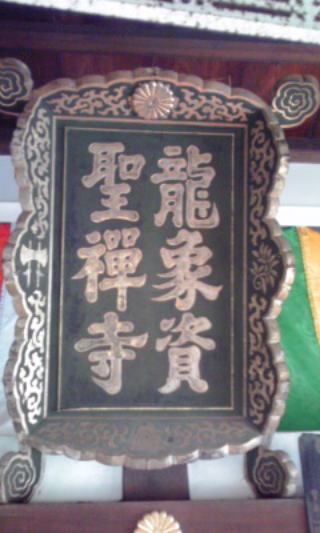 龍象資
聖禪寺